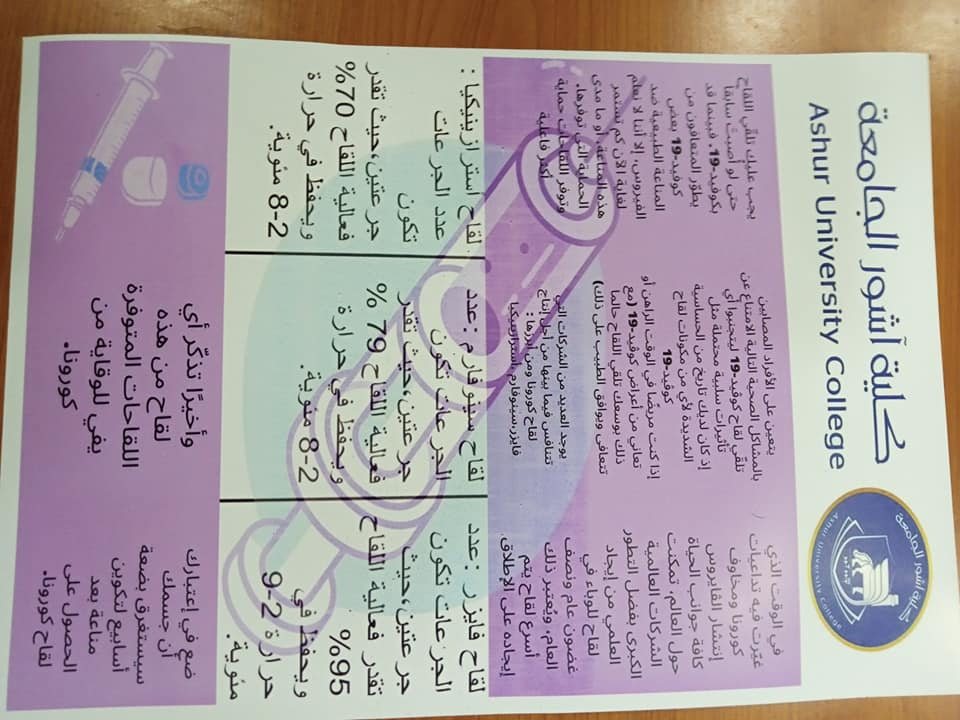 كلية آشور الجامعة
Ashur University College
كلية آشور الجامعة
Ashur University College
في الوقت الذي
غيّرت فيه تداعيات
كورونا ومخاوف
إنتشار الفايروس
كافة جوانب الحياة
حول العالم، تمكنت
الشركات العالمية
الكبرى بفضل التطور
العلمي من إيجاد
لقاح للوباء في
غضون عام ونصف
العام، ويعتبر ذلك
أسرع لقاح يتم
إيجاده على الإطلاق
يتعين على الأفراد المصابين
بالمشاكل الصحية التالية الامتناع عن
تلقّي لقاح كوفيد-19 ليتجنبوا أي
تأثيرات سلبية محتملة مثل
إذ كان لديك تاريخ من الحساسية
الشديدة لأي من مكونات لقاح
كوفيد-19
إذا كنت مريضًا في الوقت الراهن أو
تعاني من أعراض كوفيد-19 (مع
ذلك بوسعك تلقي اللقاح حالما
تتعافى ويوافق الطبيب على ذلك)
يوجد العديد من الشركات التي
تتنافس فيما بينها من أجل إنتاج
لقاح كورونا ومن أبرزها :
فايزر،سينوفارم،أسترازينيكيا
يجب عليك تلقّي اللقاح
حتى لو أصبتَ سابقًا
بكوفيد-19. فبينما قد
يطوّر المتعافون من
كوفيد-19 بعض
المناعة الطبيعية ضد
الفيروس، إلا أننا لا نعلم
لغاية الآن كم تستمر
هذه المناعة، أو ما مدى
الحماية التي توفرها.
وتوفر اللقاحات حماية
أكثر فاعلية
لقاح فايزر :عدد
الجرعات تكون
جرعتين،حيث
تقدر فعالية اللقاح
95%
ويحفظ في
حرارة 2-9
مئوية.
لقاح سينوفارم :عدد
الجرعات تكون
جرعتين،حيث تقدر
فعالية اللقاح 79 %
ويحفظ في حرارة
2-8 مئوية.
لقاح أسترازينيكيا :
عدد الجرعات
تكون
جرعتين،حيث تقدر
فعالية اللقاح 70%
ويحفظ في حرارة
2-8 مئوية.
ضع في إعتبارك
أن جسمك
سيستغرق بضعة
أسابيع لتكوين
مناعة بعد
الحصول على
لقاح كورونا.
وأخيرًا تذكّر أي
لقاح من هذه
اللقاحات المتوفرة
يفي للوقاية من
كورونا.